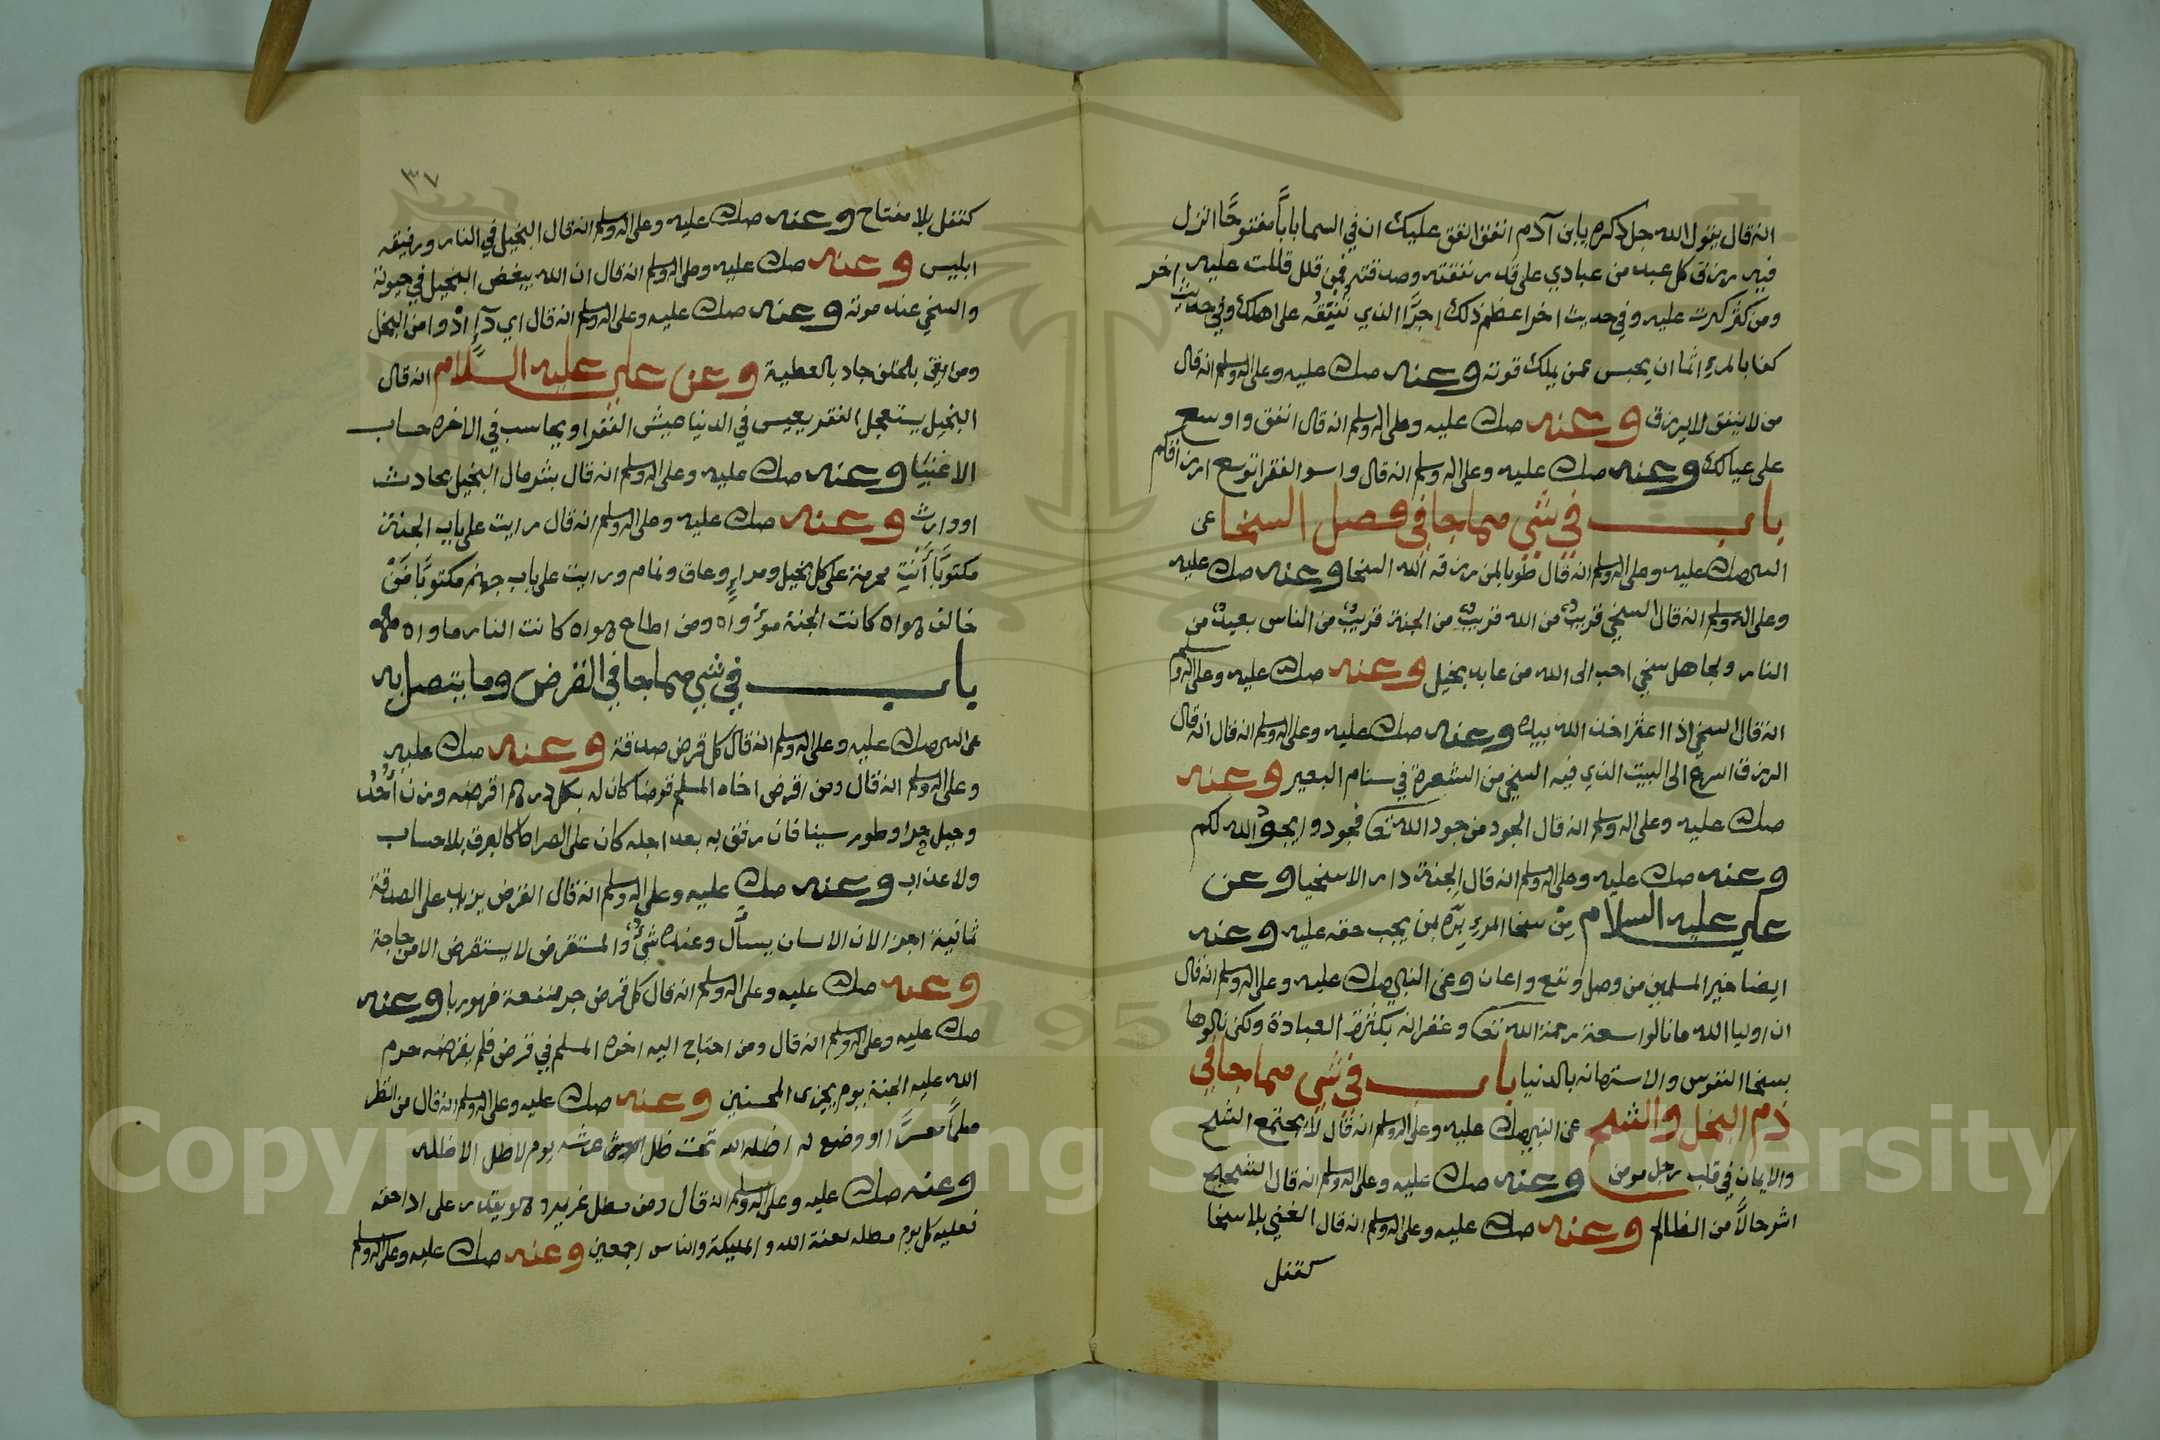 انه قال يقول الله جل ذكره يابن آدم انفق انفق عليك ان في السما باباً مفتوحًا انزل
فيه رزق كل عبد من عبادي على قدر نفقته وصدقته فمن قلل قللت عليه
ومن كثر كثرت عليه وفي حديث اخر اعظم ذلك اجرًا الذي تنفقه على اهلك وفي حديث اخر
كفا بالمرء اثما ان يحبس عمن يملك قوته وعنه صلى الله عليه وعلى اله وسلم انه قال
من لا ينفق لا يرزق وعنه صلى الله عليه وعلى اله وسلم انه قال انفق واوسع
على عيالك وعنه صلى الله عليه وعلى اله وسلم انه قال واسوا الفقرا توسع ارزاقكم
باب في شي مما جا في فصل السخا عن
النبي صلى الله عليه وعلى اله وسلم انه قال طوبا لمن رزقه الله السخا وعنه صلى الله عليه
وعلى اله وسلم انه قال السخي قريبٌ من الله قريبٌ من الجنة قريبٌ من الناس بعيدٌ من
النار ولجاهل سخي احب الى الله من عابد بخيل وعنه صلى الله عليه وعلى اله وسلم
انه قال السخي اذا اعثر اخذ الله بيده وعنه صلى الله عليه وعلى اله وسلم انه قال انه قال
الرزق اسرع الى البيت الذي فيه السخي من الشعرة في سنام البعير وعنه
صلى الله عليه وعلى اله وسلم انه قال الجود من جود الله تعالى فجودوا يجود الله لكم
وعنه صلى الله عليه وعلى اله وسلم انه قال الجنة دار الاسخيا وعن
علي عليه السلام من سخا المرء برّه لمن يجب حقه عليه وعنه
ايضا خير المسلمين من وصل ونفع واعان وعن النبي صلى الله عليه وعلى اله وسلم انه قال
ان اوليا الله ما نالوا سعة رحمة الله تعالى وغفرانه بكثرة العبادة ولكن نالوها
بسخا النفوس والاستهانه بالدنيا باب في شي مما جا في
ذم البخل والشح عن النبي صلى الله عليه وعلى اله وسلم انه قال لا يجتمع الشح
والايمان في قلب رجل مومن وعنه صلى الله عليه وعلى اله وسلم انه قال الشحيح
اشر حالاً من الظالم وعنه صلى الله عليه وعلى اله وسلم انه قال الغني بلا سخا
كقفل
٣٧
كقفل بلا مفتاح وعنه صلى الله عليه وعلى اله وسلم انه قال البخيل في النار ورفيقه
ابليس وعنه صلى الله عليه وعلى اله وسلم انه قال ان الله يبغض البخيل في حيوته
والسخي عند موته وعنه صلى الله عليه وعلى اله وسلم انه قال اي داءٍ ادْوا من البخل
ومن ايقن بالخلف جاد بالعطية وعن علي عليه السلام انه قال
البخيل يستعجل الفقر يعيس في الدنيا عيش الفقرا ويحاسب في الاخره حساب
الاغنيا وعنه صلى الله عليه وعلى اله وسلم انه قال بشر مال البخيل بحادث
او وارث وعنه صلى الله عليه وعلى اله وسلم انه قال رايت على باب الجنة
مكتوبًا أنتِ محرمة على كل بخيل ومراءٍ وعاق ونمام ورايت على باب جهنم مكتوبًا مَنْ
خالف هواه كانت الجنة مأواه ومن اطاع هواه كانت النار ماواه
باب في شي مما جا في القرض وما يتصل به
عن النبي صلى الله عليه وعلى اله وسلم انه قال كل قرض صدقة وعنه صلى الله عليه
وعلى اله وسلم انه قال ومن اقرض اخاه المسلم قرضا كان له بكل درهم اقرضه وزن أُحُد
وجبل حِرا وطور سينا فان رفق به بعد اجله كان على الصراط كالبرق بلا حساب
ولا عذاب وعنه صلى الله عليه وعلى اله وسلم انه قال القرض يزيد على الصدقة
ثمانية اجزا لان الانسان يسأل وعنده شيءٌ والمستقرض لا يستقرض الا من حاجة
وعنه صلى الله عليه وعلى اله وسلم انه قال كل قرض جر منفعة فهو ربا وعنه
صلى الله عليه وعلى اله وسلم انه قال ومن احتاج اليه اخوه المسلم في قرض فلم يقرضه حرم
الله عليه الجنة يوم يجزى المحسنين وعنه صلى الله عليه وعلى اله وسلم انه قال من انظر
مسلمًا معسرًا او وضع له اضله الله تحت ظل عرشه يوم لا ظل الا ظله
وعنه صلى الله عليه وعلى اله وسلم انه قال ومن مطل غريمه وهو يقدر على ادا حقه
فعليه كل يوم مطله لعنة الله والمليكة والناس اجمعين وعنه صلى الله عليه وعلى اله وسلم
1957
Copyright © King Saud University